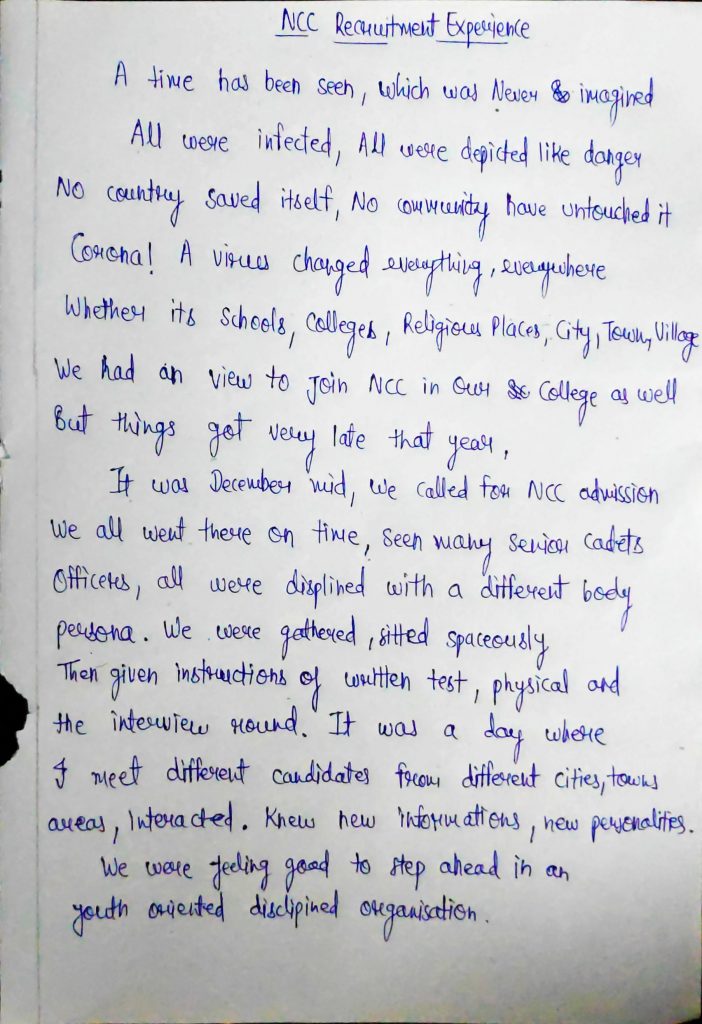 NCC Recruitment Experience
A time has been seen, which was Never imagined
All were infected, All were depicted like danger
No country saved itself, No community have untouched it
Corona! A virus changed everything, everywhere
Whether its Schools, Colleges, Religious Places, City, Town, Village
We had an view to Join NCC in Our College as well
But things got very late that year,
It was December mid, we called for NCC admission
We all went there on time, seen many senior cadets
Officers, all were displined with a different body
persona. We were gathered, sitted spaceously
Then given instructions of written test, physical and
the interview round. It was a day where
I meet different candidates from different cities, towns
areas, interacted. Knew new informations, new personalities.
We were feeling good to step ahead in an
youth oriented disclipined organisation.